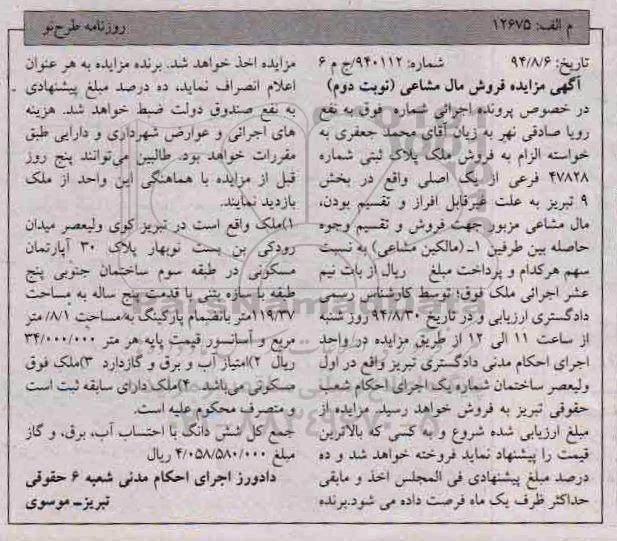 م الف: ۱۲۶۷۵
روزنامه طرح‌نو
تاریخ: ۹۴/۸/۶ شماره: ۹۴۰۱۱۲/ج م ۶
آگهی مزایده فروش مال مشاعی (نوبت دوم)
در خصوص پرونده اجرائی شماره فوق به نفع
رویا صادقی نهر به زیان آقای محمد جعفری به
خواسته الزام به فروش ملک پلاک ثبتی شماره
۴۷۸۲۸ فرعی از یک اصلی واقع در بخش
۹ تبریز به علت غیرقابل افراز و تقسیم بودن،
مال مشاعی مزبور جهت فروش و تقسیم وجوه
حاصله بین طرفین ۱ـ (مالکین مشاعی) به نسبت
سهم هرکدام و پرداخت مبلغ ریال از بابت نیم
عشر اجرائی ملک فوق؛ توسط کارشناس رسمی
دادگستری ارزیابی و در تاریخ ۹۴/۸/۳۰ روز شنبه
از ساعت ۱۱ الی ۱۲ از طریق مزایده در واحد
اجرای احکام مدنی دادگستری تبریز واقع در اول
ولیعصر ساختمان شماره یک اجرای احکام شعب
حقوقی تبریز به فروش خواهد رسید. مزایده از
مبلغ ارزیابی شده شروع و به کسی که بالاترین
قیمت را پیشنهاد نماید فروخته خواهد شد و ده
درصد مبلغ پیشنهادی فی المجلس اخذ و مابقی
حداکثر ظرف یک ماه فرصت داده می شود.برنده
مزایده اخذ خواهد شد. برنده مزایده به هر عنوان
اعلام انصراف نماید، ده درصد مبلغ پیشنهادی
به نفع صندوق دولت ضبط خواهد شد. هزینه
های اجرائی و عوارض شهرداری و دارایی طبق
مقررات خواهد بود. طالبین می‌توانند پنج روز
قبل از مزایده با هماهنگی این واحد از ملک
بازدید نمایند.
۱)ملک واقع است در تبریز کوی ولیعصر میدان
رودکی بن بست نوبهار پلاک ۳۰ آپارتمان
مسکونی در طبقه سوم ساختمان جنوبی پنج
طبقه با سازه بتنی با قدمت پنج ساله به مساحت
۱۱۹/۳۷متر بانضمام پارکینگ به مساحت ۸/۱۰ متر
مربع و آسانسور قیمت پایه هر متر ۳۴/۰۰۰/۰۰۰
ریال ۲)امتیاز آب و برق و گازدارد ۳)ملک فوق
مسکونی می‌باشد ۴)ملک دارای سابقه ثبت است
و متصرف محکوم علیه است.
جمع کل شش دانگ با احتساب آب، برق، و گاز
مبلغ ۴/۰۵۸/۵۸۰/۰۰۰ ریال
دادورز اجرای احکام مدنی شعبه ۶ حقوقی
تبریزـ موسوی
ParsNamadData